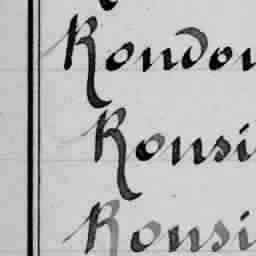 Rondou
Ronsi
Ronsi